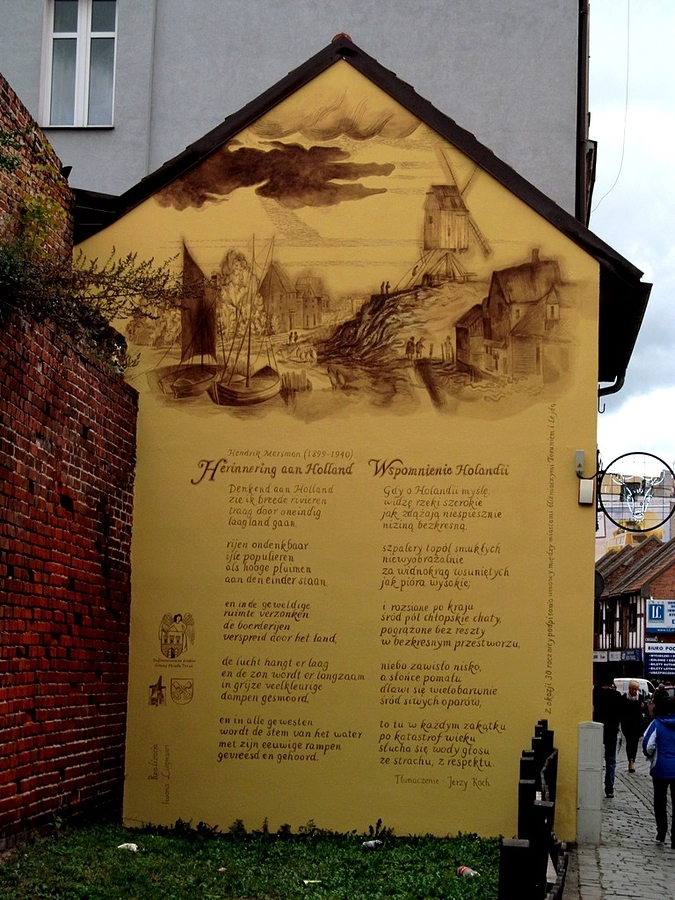 Hendrik Marsman (1899-1940)
Herinnering aan Holland
Denkend aan Holland
zie ik breede rivieren
traag door oneindig
laagland gaan,
rijen ondenkbaar
ijle populieren
als hooge pluimen
aan den einder staan;
en in de geweldige
ruimte verzonken
de boerderijen
verspreid door het land,
de lucht hangt er laag
en de zon wordt er langzaam
in grijze veelkleurige
dampen gesmoord,
en in alle gewesten
wordt de stem van het water
met zijn eeuwige rampen
gevreesd en gehoord.
Wspomnienie Holandii
Gdy o Holandii myślę,
widzę rzeki szerokie
jak zdążają niespiesznie
niziną bezkresną.
szpalery topól smukłych
niewyobrażalnie
za widnokrąg wsuniętych
jak pióra wysokie;
i rozsiane po kraju
śród pól chłopskie chaty,
pogrążone bez reszty
w bezkresnym przestworzu,
niebo zawisło nisko,
a słońce pomału
dławi się wielobarwnie
śród siwych oparów,
to tu w każdym zakątku
po katastrof wieku
słucha się wody głosu
ze strachu, z respektu.
Tłumaczenie - Jerzy Koch
Z okazji 30 rocznicy podpisania umowy między miastami bliźniaczymi Toruniem i Lejdą
BIURO